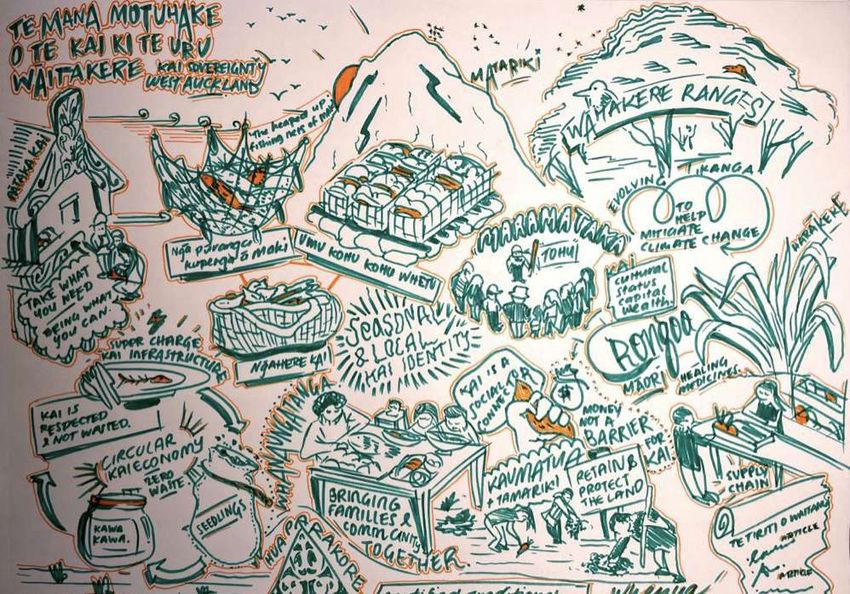 TE MANA MOTUHAKE
O TE KAI KI TE URU
WAITAKERE
KAI SOVEREIGNTY
WEST AUCKLAND
PATAKA KAI
The heaped up
fishing nets of Maki
MATARIKI
WAITAKERE RANGES
EVOLVING TIKANGA
TO
HELP
MITIGATE
CLIMATE CHANGE
HARAKEKE
Ngā pōrangi
kupenga ō Maki
UMU KOHU KOHU WHETU
MARAMATAKA
TOHU
KAI
cultural
status
capital
wealth.
TAKE WHAT
YOU NEED
BRING WHAT
YOU CAN.
NGAHERE KAI
SEASONAL
& LOCAL
KAI IDENTITY
Rongoa
MĀORI
HEALING
MEDICINES.
SUPER CHARGE
KAI INFRASTRUCTURE
KAI IS
RESPECTED
& NOT WASTED.
KAI IS A
SOCIAL
CONNECTOR
MONEY
NOT A
BARRIER
FOR
KAI
CIRCULAR
KAI ECONOMY
ZERO
WASTE
KAWA
KAWA.
SEEDLINGS
BRINGING
FAMILIES &
COMMUNITY
TOGETHER.
KAUMATUA
+ TAMARIKI
RETAIN &
PROTECT
THE LAND
SUPPLY
CHAIN
HUA PARAKORE
TE TIRITI O WAITANGI
ARTICLE
ARTICLE